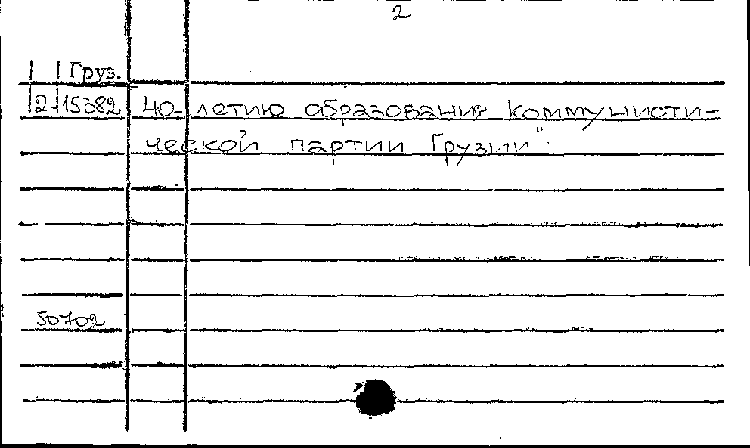 2
Груз.
2-15382 40-летию образования Коммунисти-
ческой партии Грузии".
50702